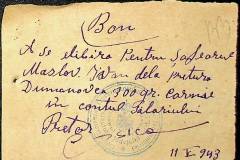 Bon
A se elibera Pentru Șoferul
Mazlov Ivan dela pretura
Dumanovca 300 gr. carne
in contul salariului
Pretor
11 X 943